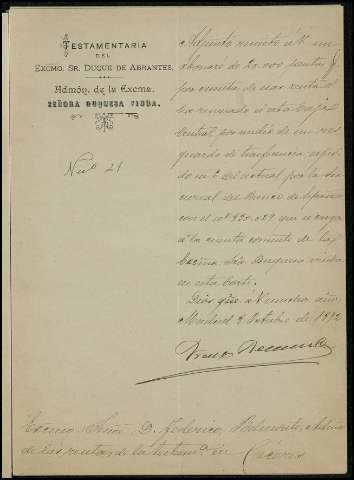 TESTAMENTARIA
DEL
EXCMO. SR. DUQUE DE ABRANTES.
Admón. de la Excma.
SEÑORA DUQUESA VIUDA.
21
Adjunto remito á V. un
abonaré de 20.000 pesetas
por cuenta de esas rentas
central, por medio de un res-
guardo de transferencia
del actual por la su-
cursal del Banco de España
con el nº
á la cuenta corriente de la
Excma Sra Duquesa viuda
en esta Corte.
Dios gde. á V. muchos años.
Madrid 8 Octubre de 1892
Excmo Señor D. Federico Admor
de las rentas de la en Cáceres